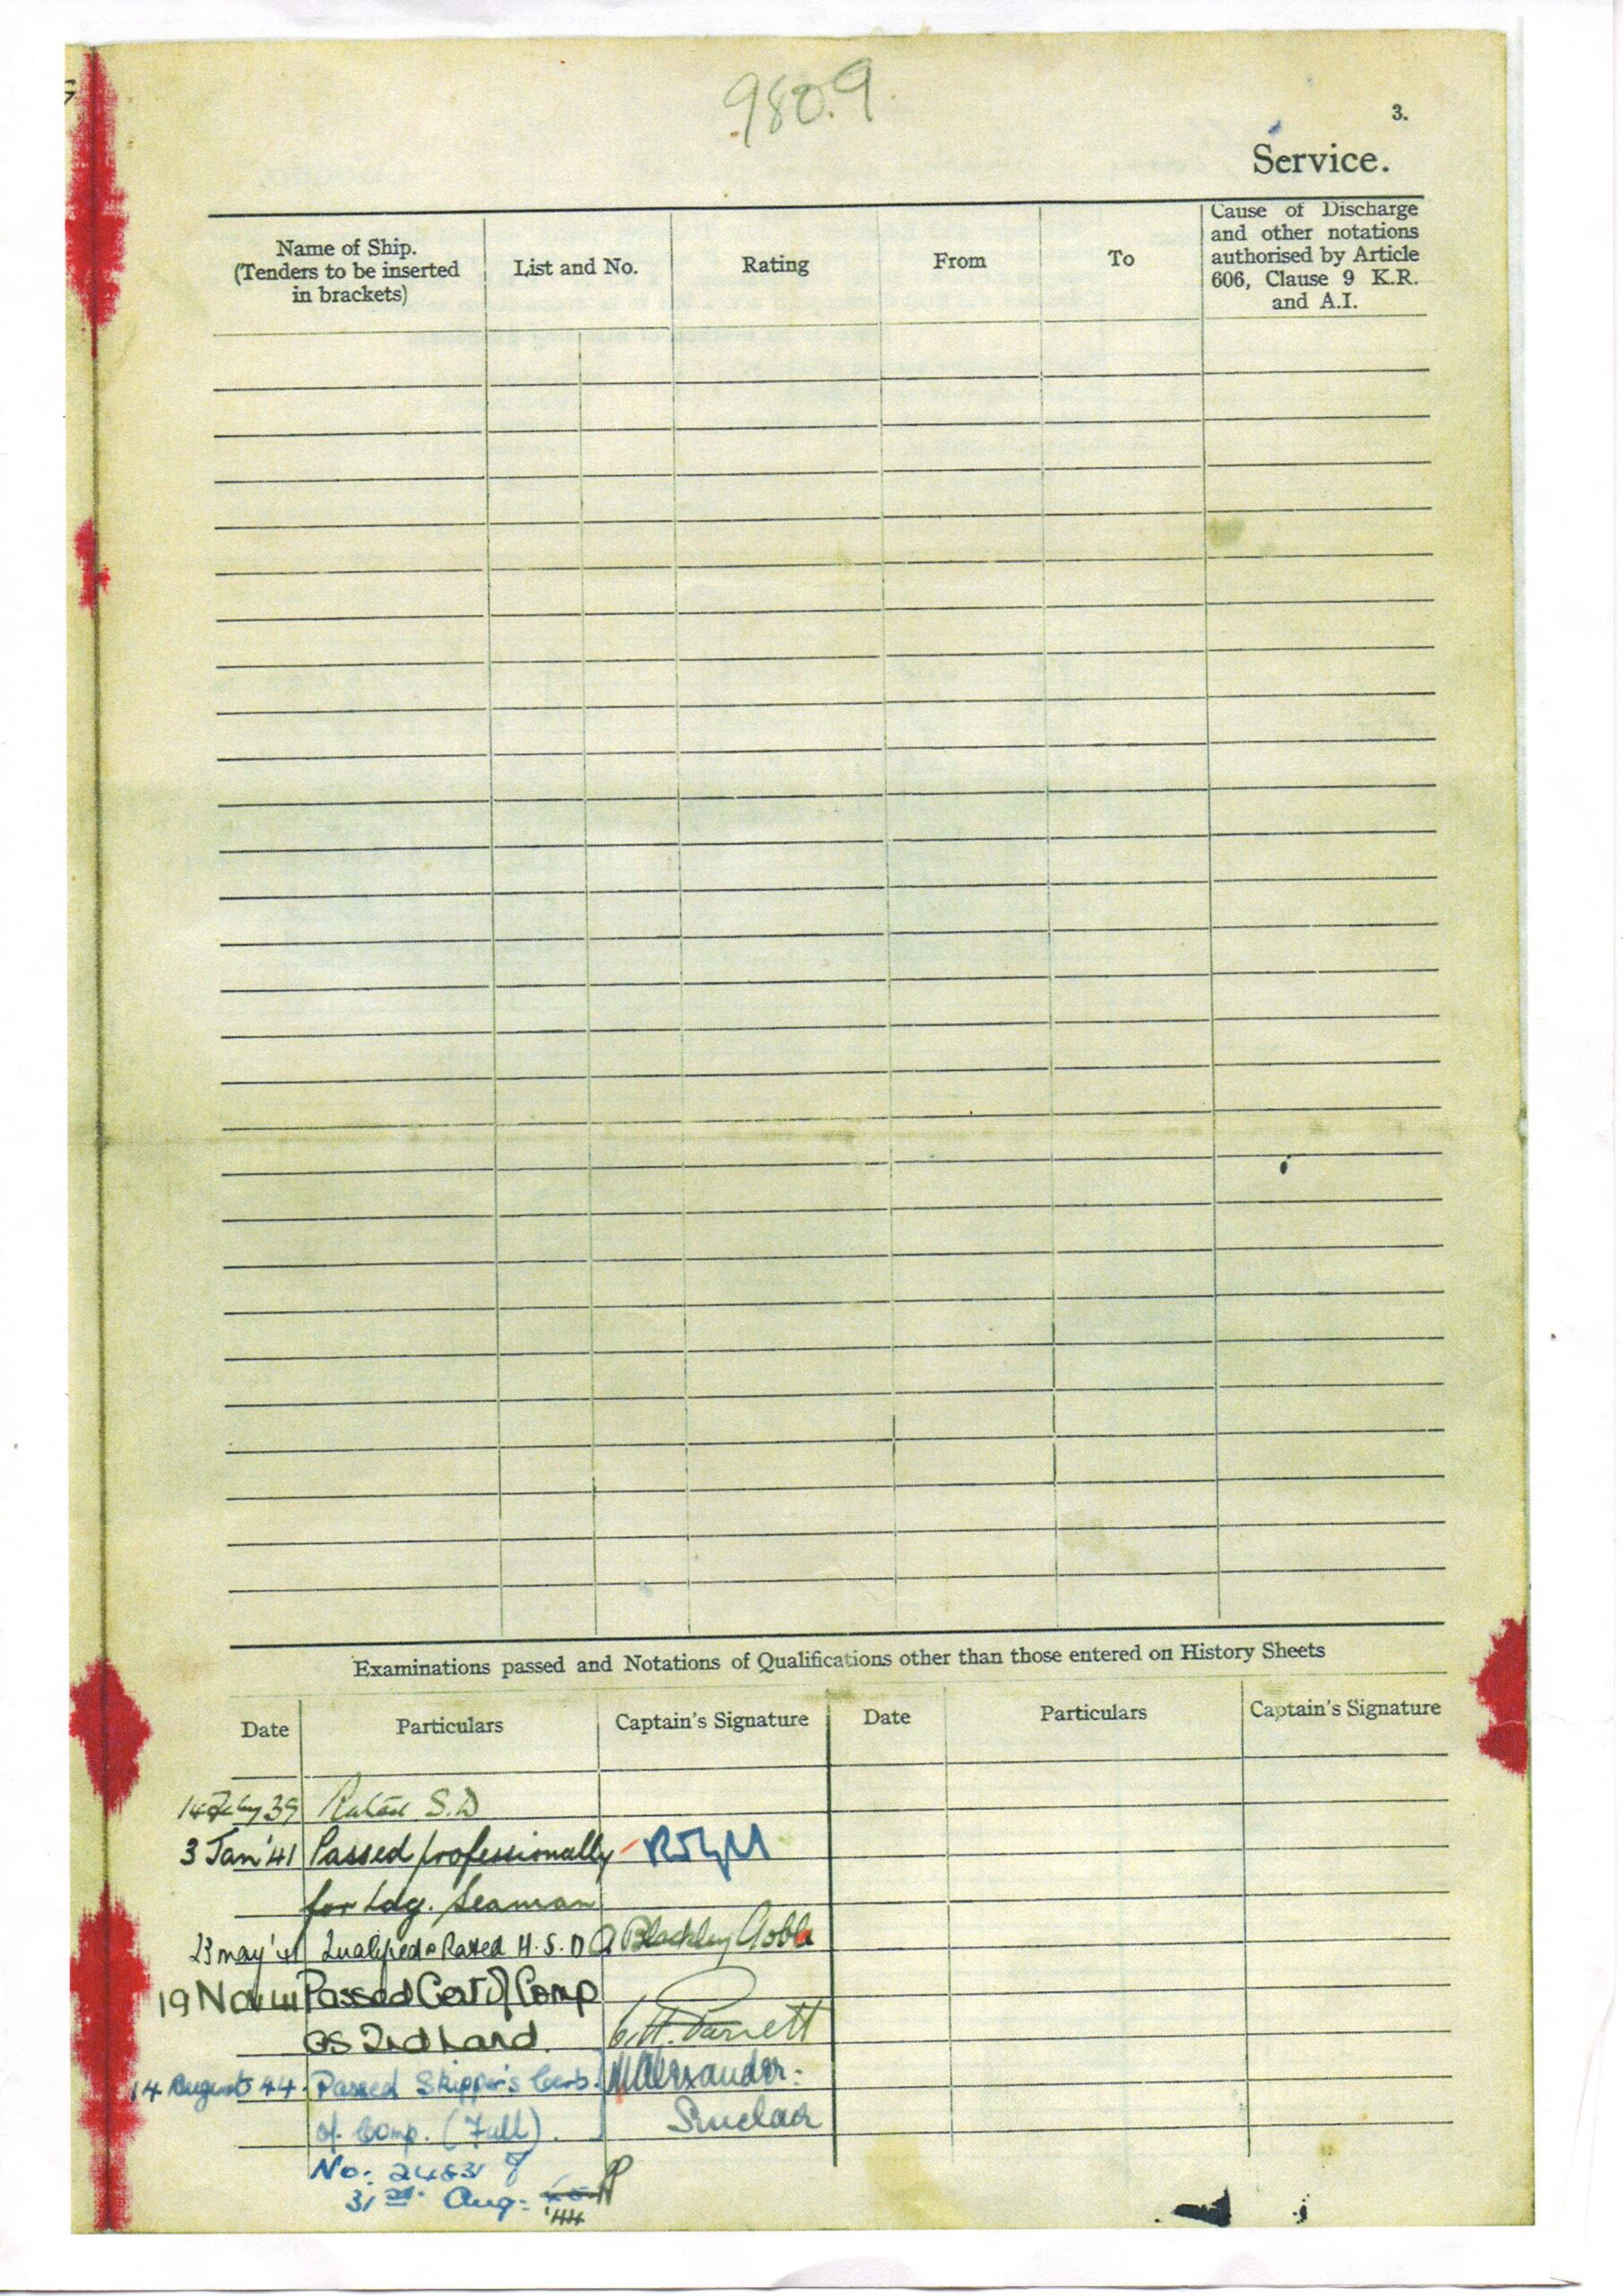 9809
3.
Service.
Name of Ship.
(Tenders to be inserted
in brackets)
List and No.
Rating
From
To
Cause of Discharge
and other notations
authorised by Article
606, Clause 9 K.R.
and A.I.
Examinations passed and Notations of Qualifications other than those entered on History Sheets
Date
Particulars
Captain's Signature
Date
Particulars
Captain's Signature
39 Rated S.D
3 Jan '41 Passed professionally
for Ldg. Seaman
23 May '41 Qualified & Rated H.S.D
19 Nov 41 Passed Cert of Comp
as 2nd Hand. Parrett
14 August 44. Passed Skipper's Cert. Alexander-
of Comp. (Full). Sinclair
No: 24831
31st Aug: '44